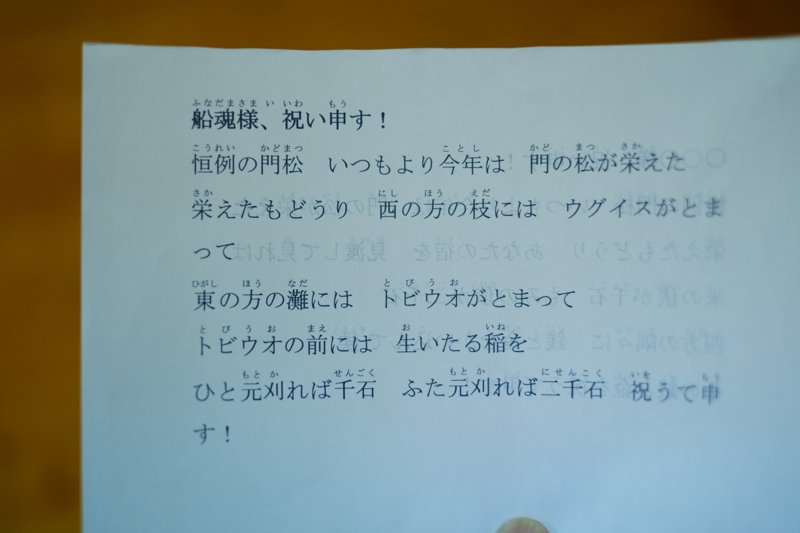 船魂様、祝い申す！
恒例の門松　いつもより今年は　門の松が栄えた
栄えたもどうり　西の方の枝には　ウグイスがとま
って
東の方の灘には　トビウオがとまって
トビウオの前には　生いたる稲を
ひと元刈れば千石　ふた元刈れば二千石　祝うて申
す！